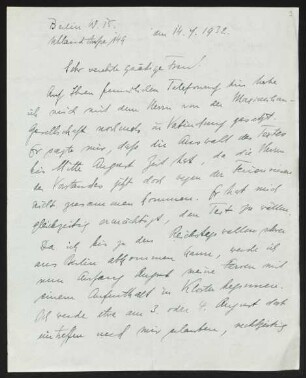 Berlin W. 15.
Uhlandstraße 144
am 14. 7. 1932.
Sehr verehrte gnädige Frau!
Auf Ihren freundlichen Telefonanruf hin habe
ich mich mit dem Herrn von der
gesellschaft nochmals in Verbindung gesetzt.
Er sagte mir, daß die Auswahl des Textes
bis Mitte August Zeit hat, da die Herren
des Vorstandes jetzt doch wegen der Ferien
nicht zusammen kommen. Er hat mich
gleichzeitig ermächtigt, den Text zu wählen.
Da ich bis zu den Reichstagswahlen schon
aus Berlin abkommen kann, werde ich
nun Anfang August meine Ferien mit
einem Aufenthalt in Kloster beginnen.
Ich werde etwa am 3. oder 4. August dort
eintreffen und mir erlauben, rechtzeitig